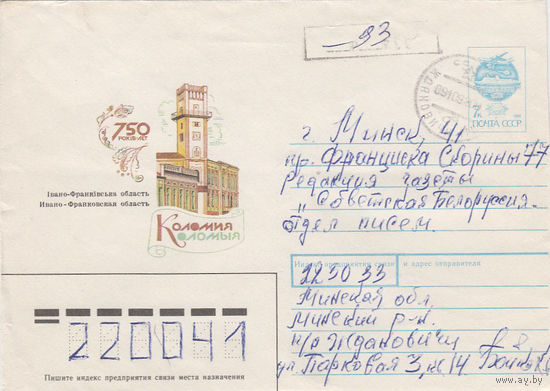 93
7к
ПОЧТА СССР
750
РОКІВ·ЛЕТ
Івано-Франківська область
Ивано-Франковская область
Коломия
Коломыя
г. Минск, 41
пр. Франциска Скорины 77
Редакция газеты
"Советская Белоруссия"
отдел писем.
Индекс предприятия связи и адрес отправителя
225033
Минская обл.
Минский р-н.
п/о Ждановичи
ул. Парковая 3, кв. 14.
220041
Пишите индекс предприятия связи места назначения
www.ay.by